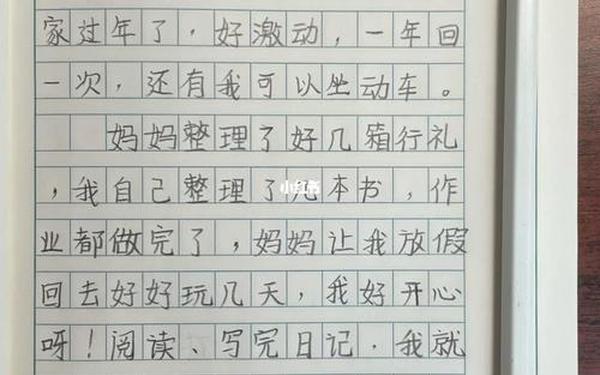 家过年了，好激动，一年回
一次，还有我可以坐动车。
妈妈整理了好几箱行礼
，我自己整理了几本书，作
业都做完了，妈妈让我放假
回去好好玩几天，我好开心
呀！阅读、写完日记．我就
小红书